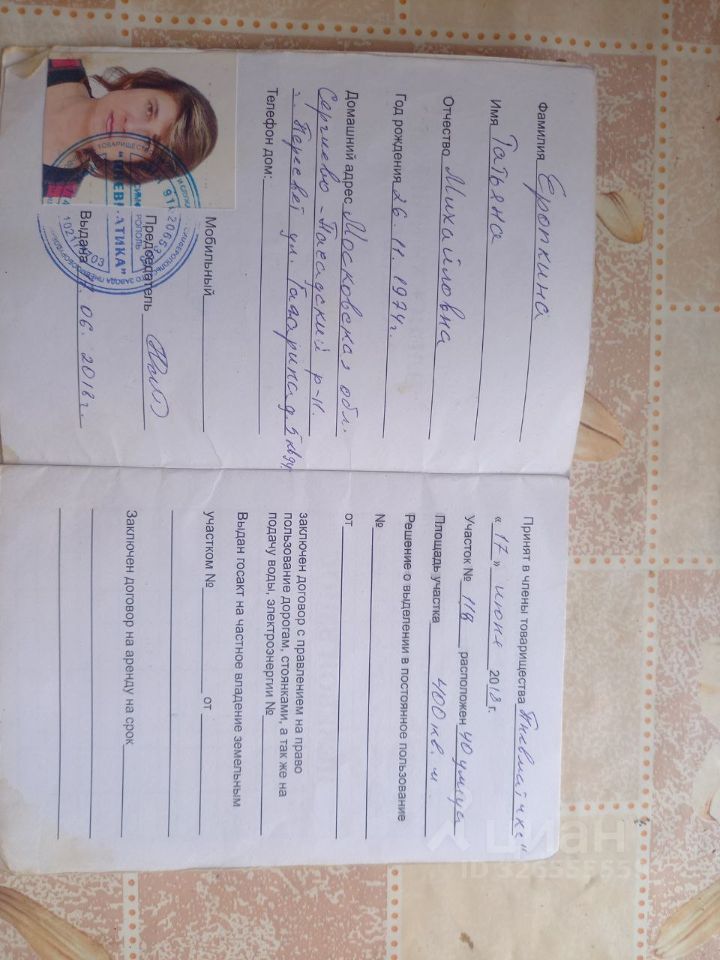 Фамилия Еропкина
Имя Татьяна
Отчество Михайловна
Год рождения 26. 11. 1974г.
Домашний адрес Московская обл.
Сергиево-Посадский р-н.
г. Пересвет ул. Гагарина д. 5 кв 94
Телефон дом:
Мобильный
Председатель
Выдана 06. 2018 г.
"ПНЕВМАТИКА"
Принят в члены товарищества "Пневматике"
« 17 » июня 2018 г.
Участок № 118 расположен 40
Площадь участка 400 кв. м
Решение о выделении в постоянное пользование
№
от
заключен договор с правлением на право
пользование дорогам, стоянками, а так же на
подачу воды, электроэнергии №
Выдан госакт на частное владение земельным
участком № от
Заключен договор на аренду на срок
циан